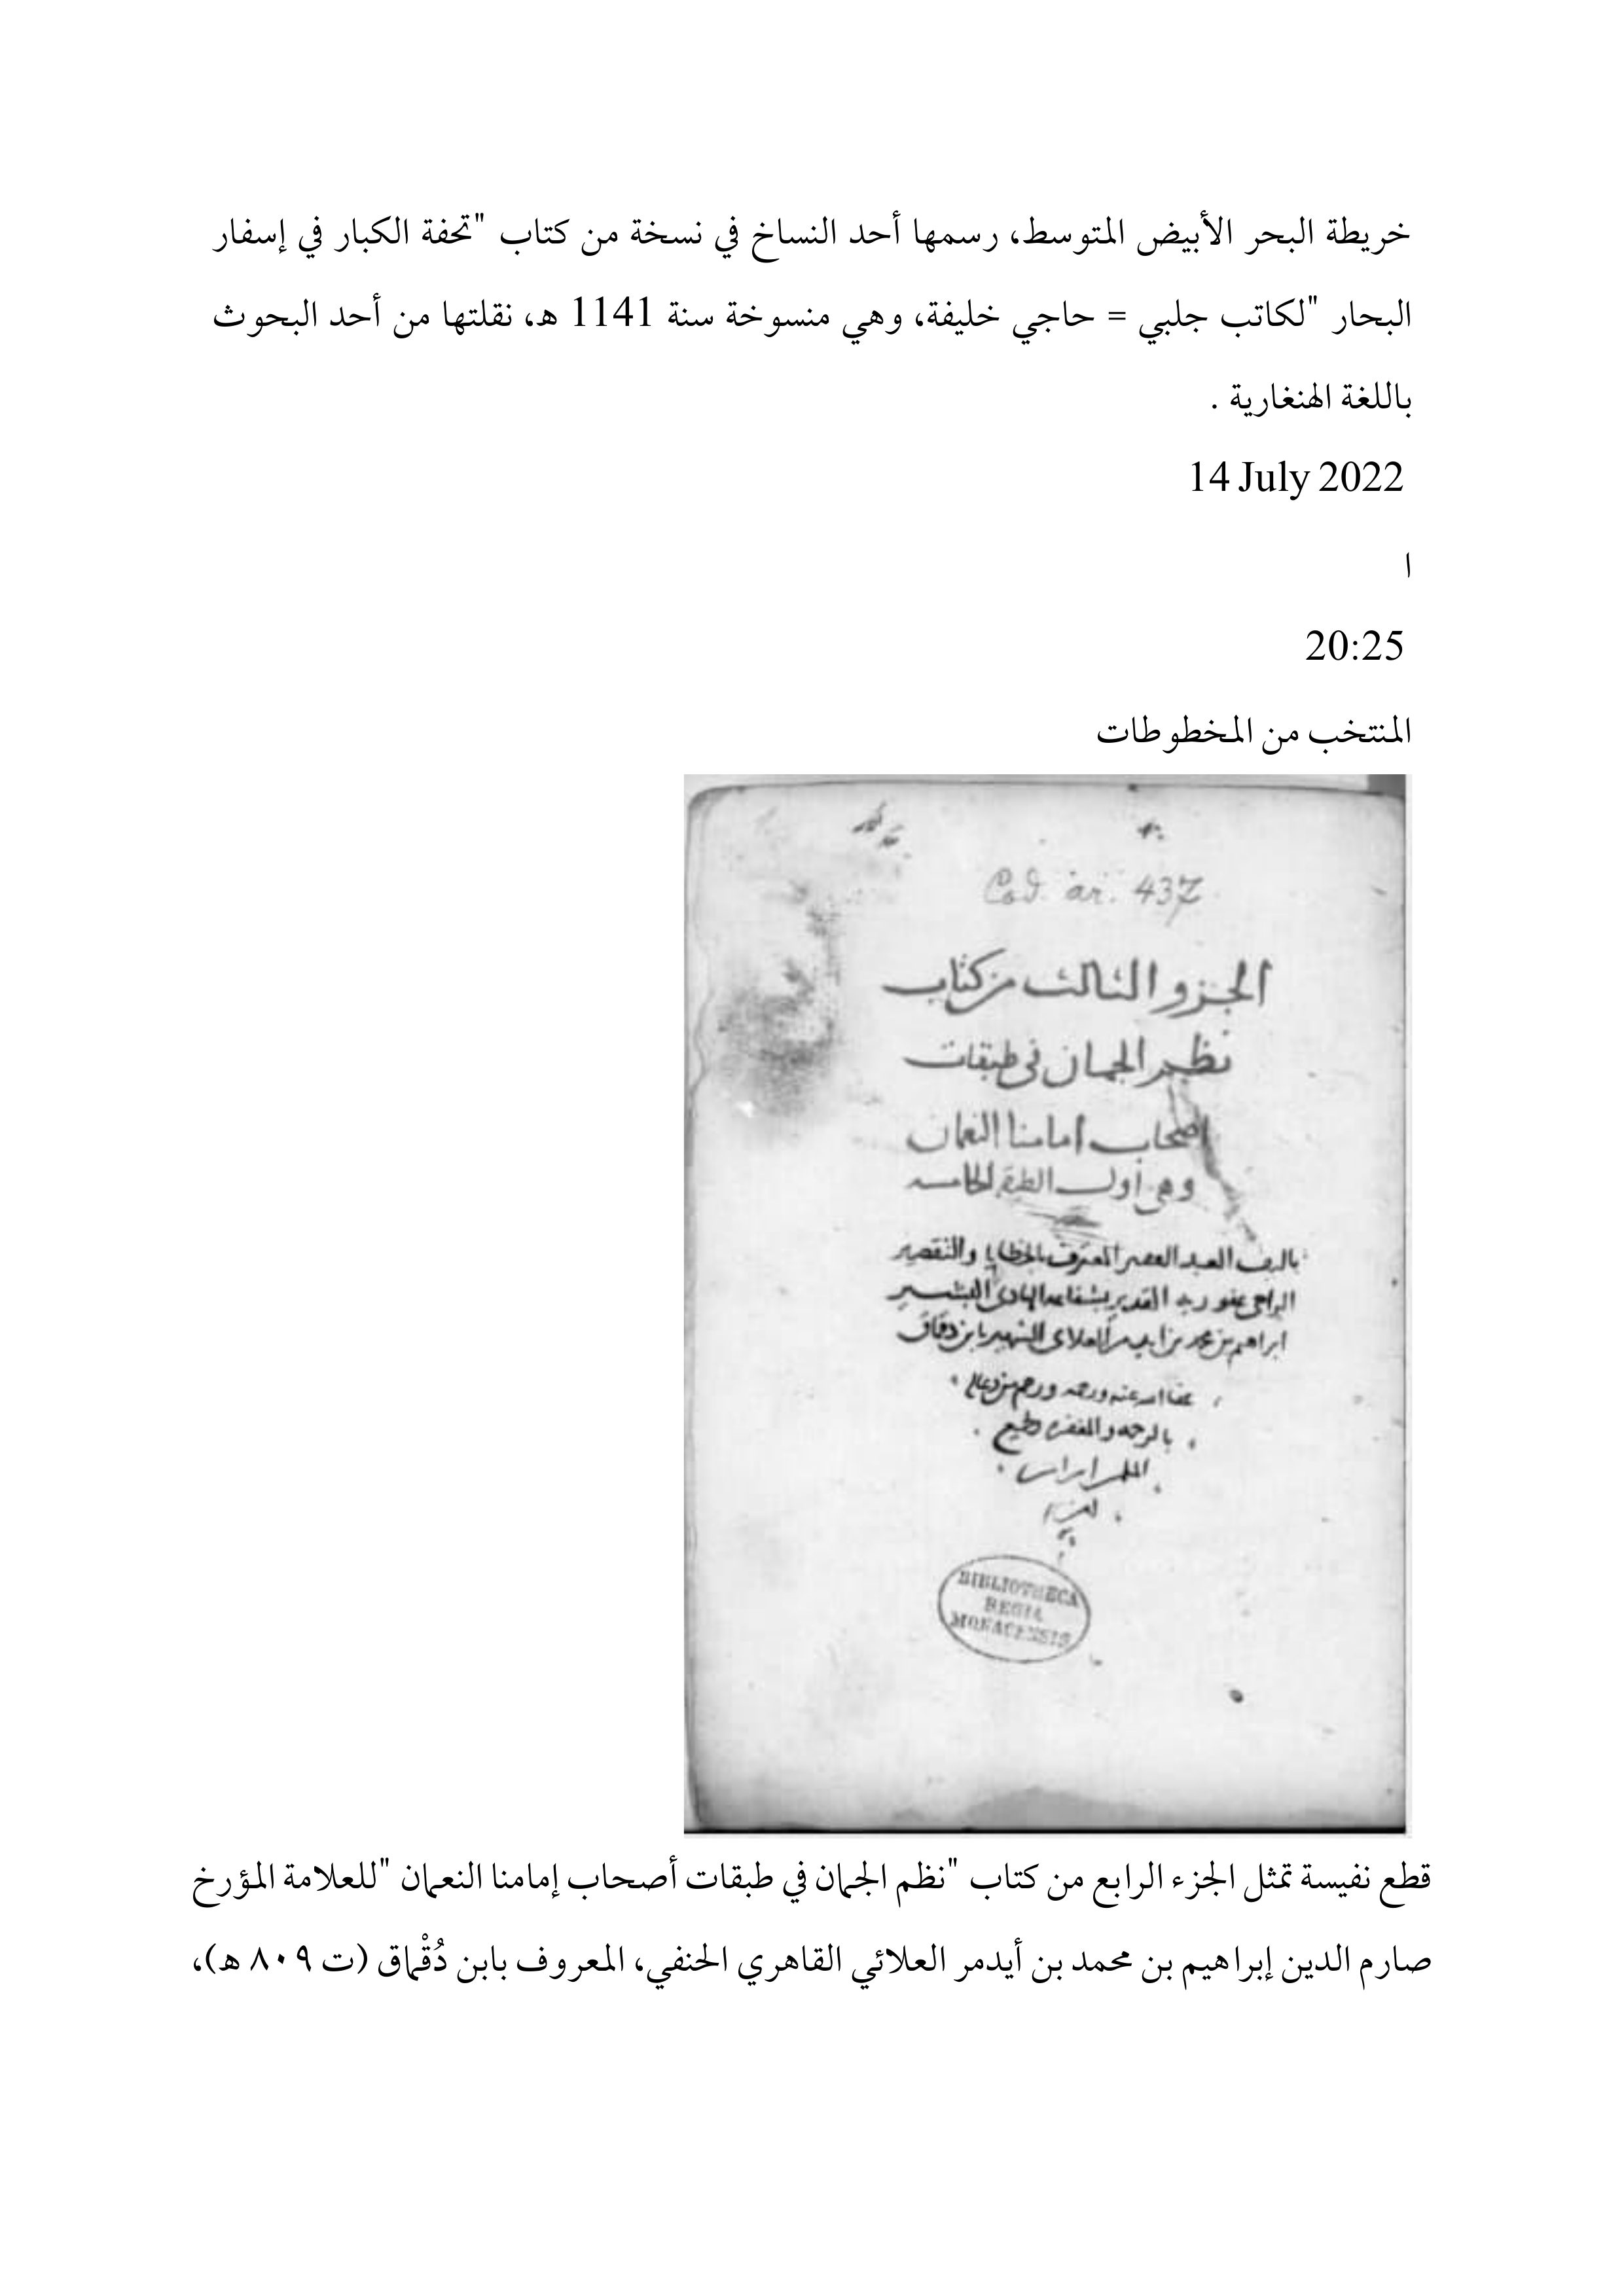 خريطة البحر الأبيض المتوسط، رسمها أحد النساخ في نسخة من كتاب "تحفة الكبار في إسفار
البحار "لكاتب جلبي = حاجي خليفة، وهي منسوخة سنة 1141 هـ، نقلتها من أحد البحوث
باللغة الهنغارية .
14 July 2022
ا
20:25
المنتخب من المخطوطات
Cod. ar. 437
الجزو الثالث من كتاب
نظم الجمان في طبقات
اصحاب امامنا النعمان
وهي أول الطبقة الخامسه
تاليف العبد المعترف بالخطايا والتقصير
الراجي عفو ربه القدير بشفاعة الهادي البشير
ابراهيم بن محمد بن ايدمر العلاى الشهير بابن دقماق
عفا الله عنه ورحمه ورحم من دعا له
بالرحمه والمغفره ولجميع
المسلمين
BIBLIOTHECA
REGIA
MONACENSIS
قطع نفيسة تمثل الجزء الرابع من كتاب "نظم الجمان في طبقات أصحاب إمامنا النعمان "للعلامة المؤرخ
صارم الدين إبراهيم بن محمد بن أيدمر العلائي القاهري الحنفي، المعروف بابن دُقْماق (ت ٨٠٩ هـ)،